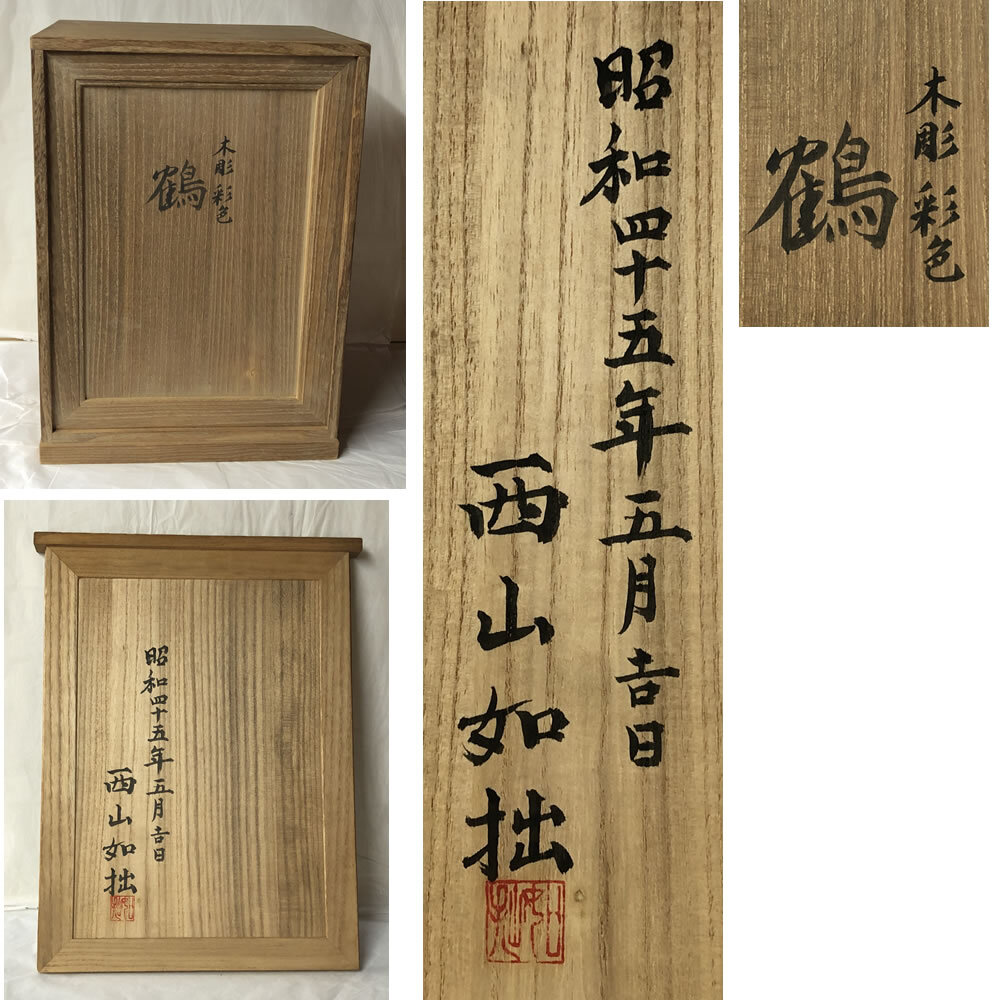 木彫 彩色
鶴
昭和四十五年五月吉日
西山如拙
昭和四十五年五月吉日
西山如拙
木彫 彩色
鶴